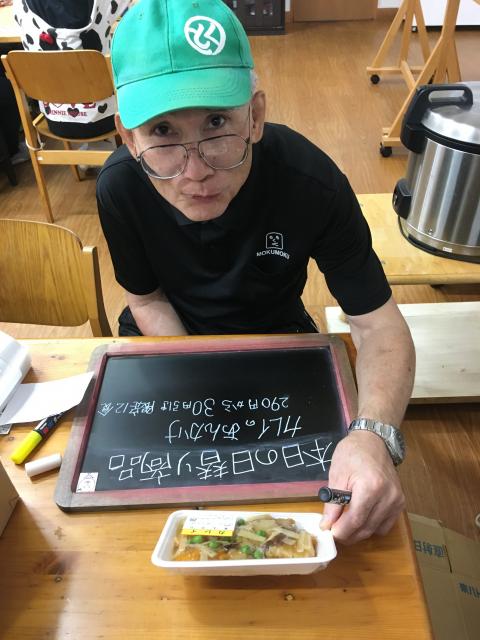 MINNIE MOUSE
MOKUMOKU
本日の日替り商品
カレイのあんかけ
290円から30円引き 限定12食
カレイ
直射日